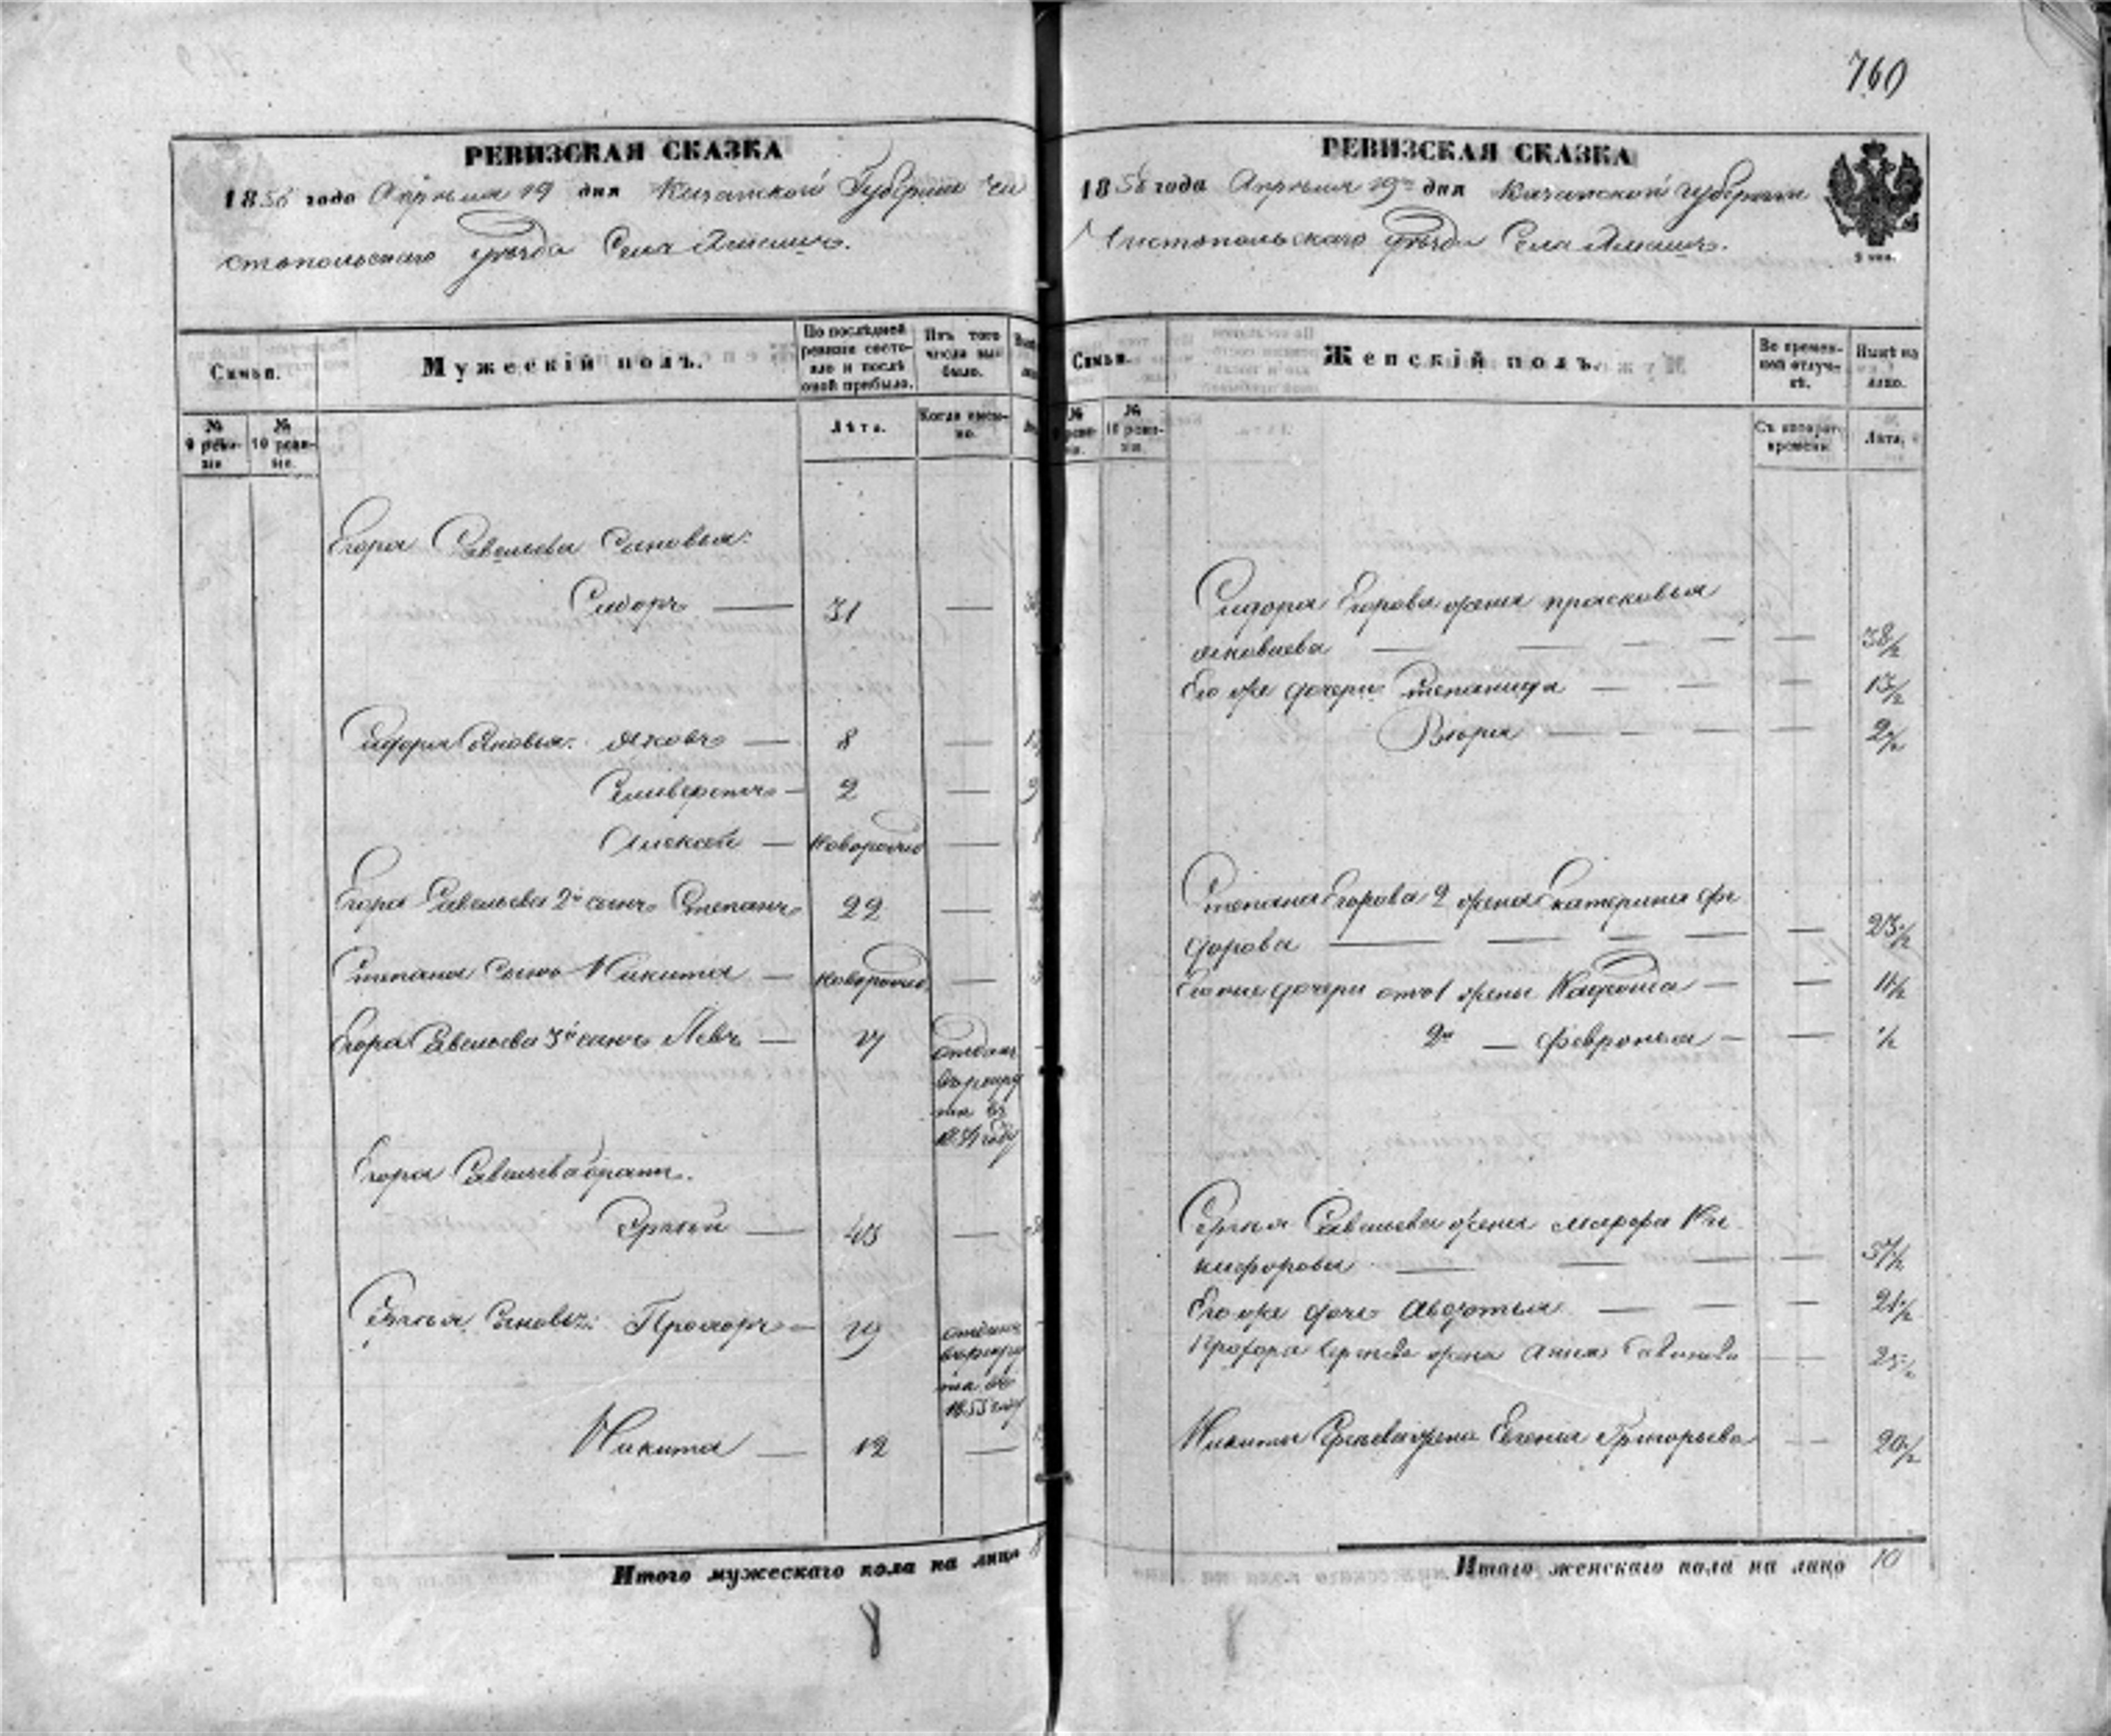 760
РЕВИЗСКАЯ СКАЗКА
1858 года Апреля 19 дня Казанской Губернии Чи
стопольскаго уезда Села
Семьи.
Мужескій полъ.
По послѣдней
ревизіи состо-
яло и послѣ
оной прибыло.
Изъ того
числа вы-
было.
№
9 реви-
зіи
№
10 реви-
зіи.
Лѣта.
Когда имен-
но.
Егора Савельева Сыновья:
Сидоръ — 31 —
Сидора Сыновья: Яковъ — 8 —
Селиверстъ — 2 —
Алексей — новорожд —
Егора Савельева 2й сынъ Степанъ 22 —
Степана сынъ Никита — новорожд —
Егора Савельева 3й сынъ Левъ — 17
отдан
въ рекру
ты въ
году
Егора Савельева братъ.
Сергей — 48 —
Сергея Сыновья: Прохоръ — 19
въ рекру
ты въ
1855 году
Никита — 12 —
Итого мужескаго пола на лицо 8
8
РЕВИЗСКАЯ СКАЗКА
1858 года Апреля 19го дня Казанской губернии
Чистопольскаго уезда Села
Семьи.
Женскій полъ.
Во времен-
ной отлуч-
кѣ.
Нынѣ на
лицо.
№
№
10 реви-
зіи.
Съ котораго
времени.
Лѣта.
Сидора Егорова жена прасковья
яковлева — — — — — 38½
Его же дочери степанида — — — — 13½
— — — — 2½
Степана Егорова 2 жена Екатерина фе
дорова — — — — — 23½
дочери отъ 1 жены — — 11½
2й — февронья — — ½
Сергея Савельева жена марфа Ни
кифорова — — — — 57½
Его же дочь авдотья — — — 21½
Прохора Сергеева жена анна — — 25½
Никиты Сергеева жена Евгения Григорьева — — 20½
Итого женскаго пола на лицо 10